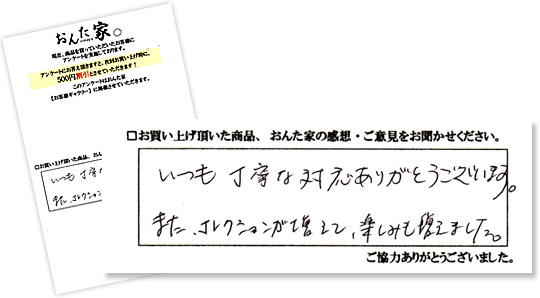 おんた家
現在、商品を買っていただいたお客様に
アンケートを実施しております。
アンケートにお答え頂きますと、次回お買い上げ時に、
500円割引とさせていただきます!
このアンケートはおんた家
【お客様ギャラリー】に掲載させていただきます。
□お買い上げ頂いた商品、おん
いつも 丁寧な
また、コレクション
□お買い上げ頂いた商品、おんた家の感想・ご意見をお聞かせください。
いつも 丁寧な対応ありがとうございます。
また、コレクションが増えて、楽しみも増えました。
ご協力ありがとうございました。